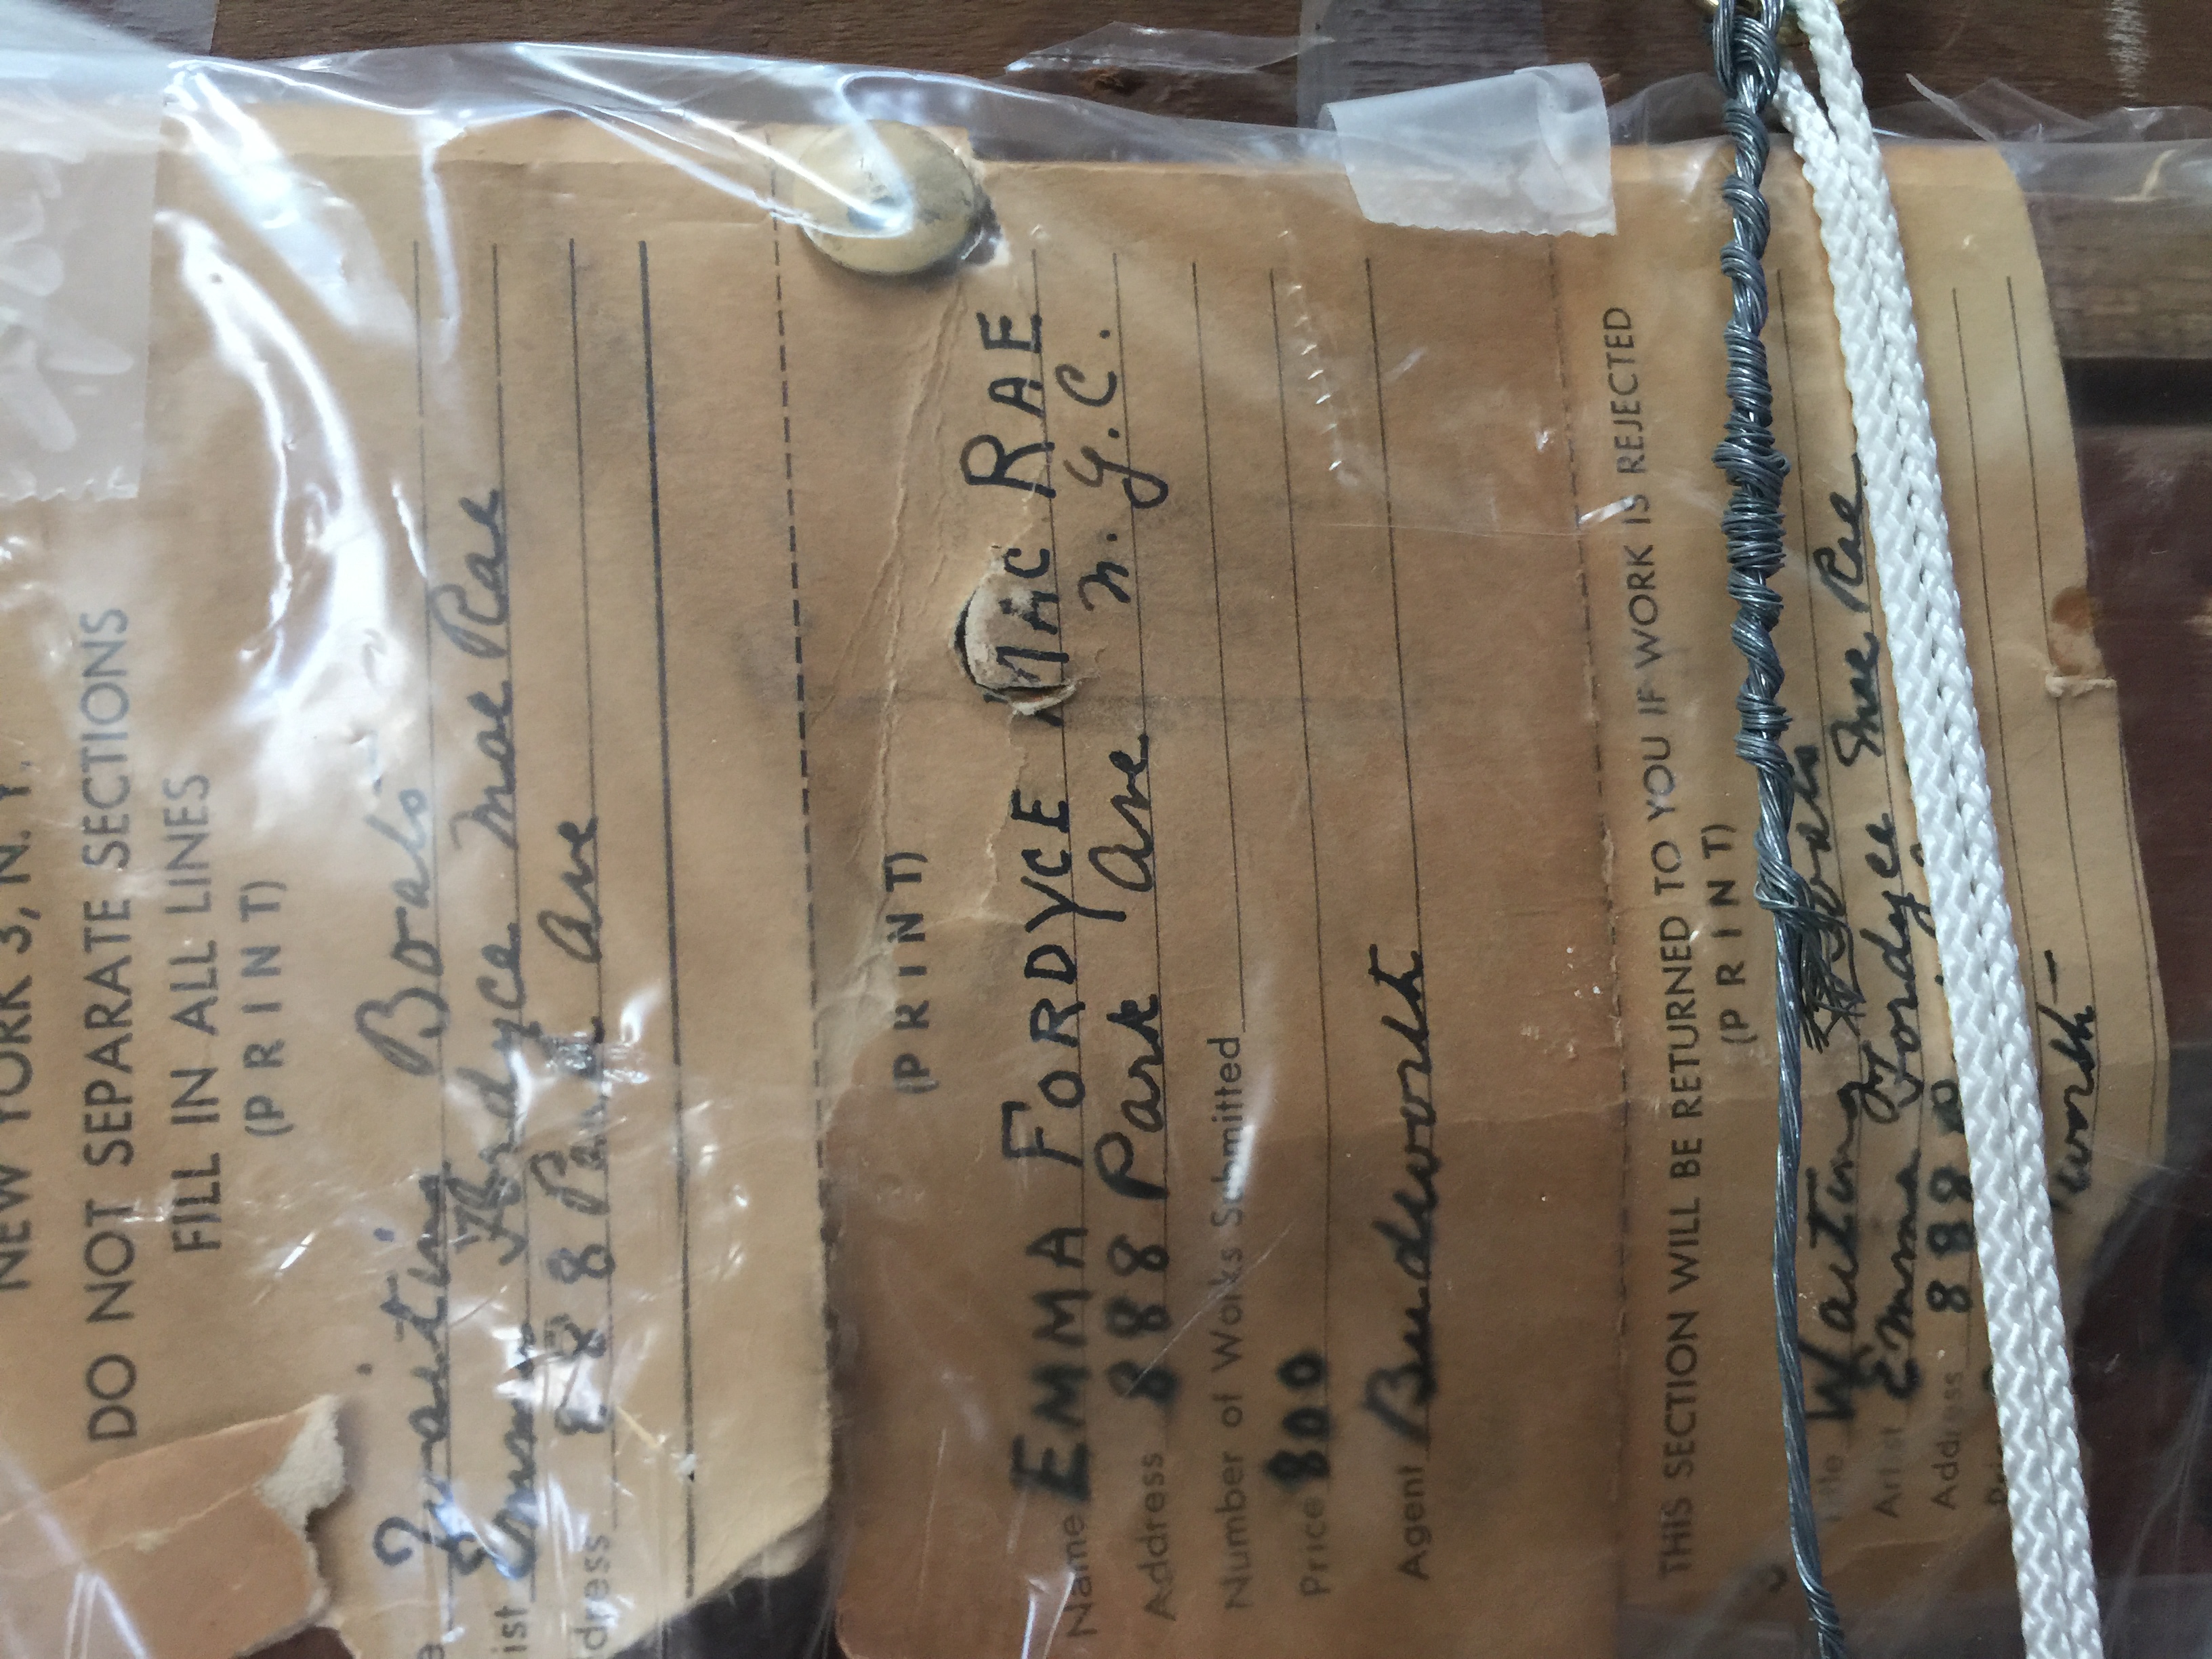 NEW YORK 3, N. Y.
DO NOT SEPARATE SECTIONS
FILL IN ALL LINES
(PRINT)
e Waiting Boats
ist Emma Fordyce Mac Rae
dress 888 Park Ave
(PRINT)
Name EMMA FORDYCE MAC RAE
Address 888 Park Ave N.Y.C.
Number of Works Submitted
Price 800
Agent Budworth
THIS SECTION WILL BE RETURNED TO YOU IF WORK IS REJECTED
(PRINT)
Title Waiting Boats
Artist Emma Fordyce Mac Rae
Address 888
worth